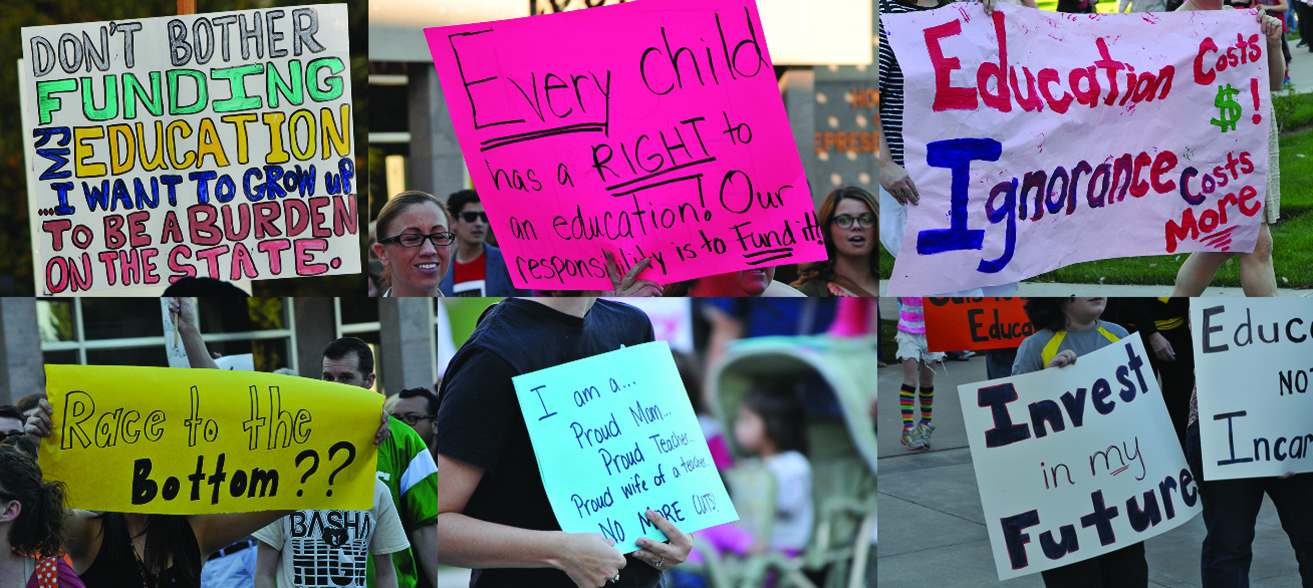 DON'T BOTHER
FUNDING
MY EDUCATION
...I WANT TO GROW UP
TO BE A BURDEN
ON THE STATE.
Every child
has a RIGHT to
an education! Our
responsibility is to Fund it!
Education Costs
$!
Ignorance Costs
More
Race to the
Bottom??
BASHA
HIGH
I am a...
Proud Mom...
Proud Teacher...
Proud wife of a teacher...
NO MORE CUTS!
Educa
Invest
in my
Future
Educ
NOT
Incar